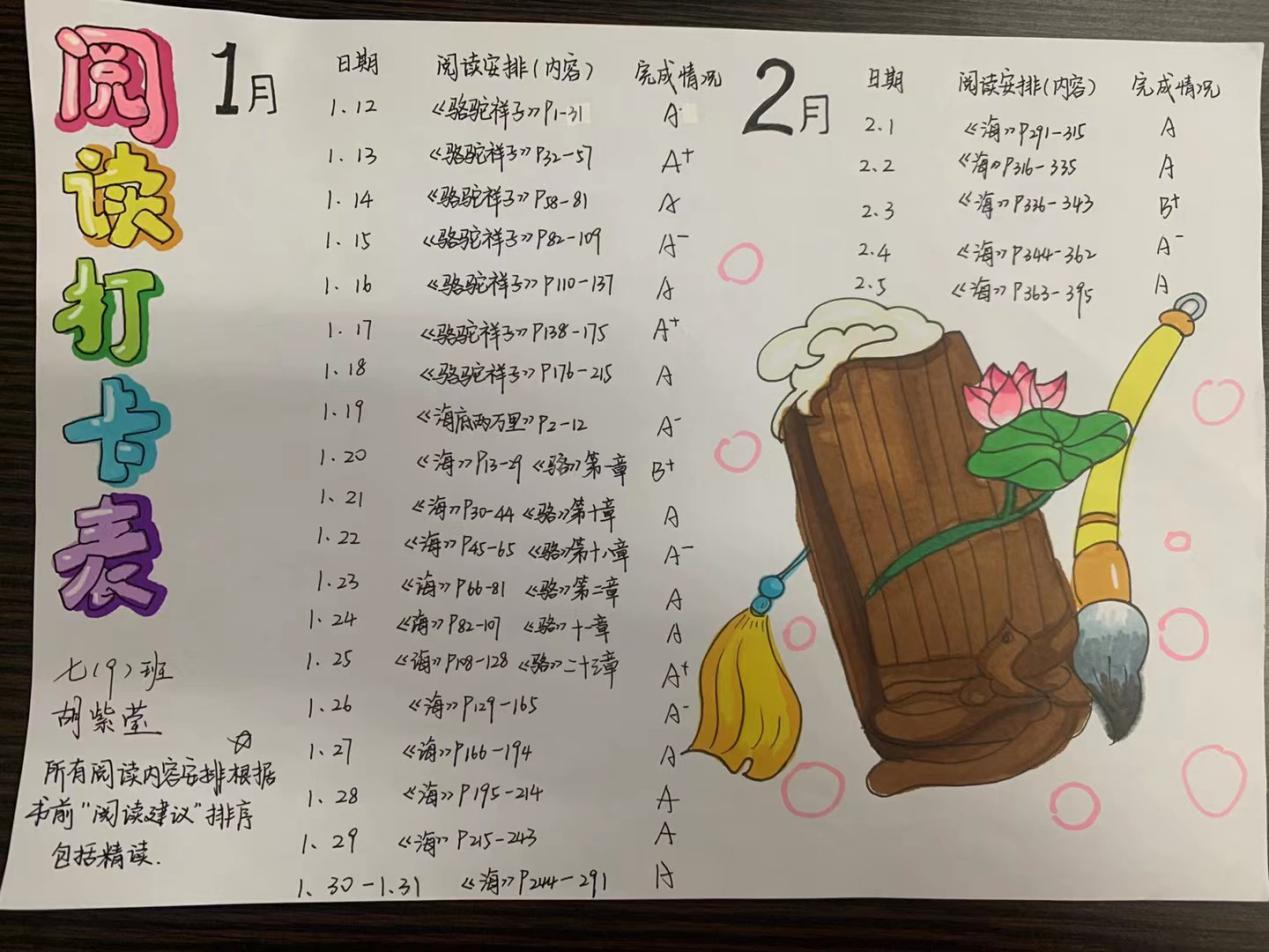 阅读打卡表
七(9)班
胡紫莹
☆
所有阅读内容安排根据
书前“阅读建议”排序
包括精读.
1月
日期 阅读安排(内容) 完成情况
1.12 《骆驼祥子》P1-31 A
1.13 《骆驼祥子》P32-57 A+
1.14 《骆驼祥子》P58-81 A
1.15 《骆驼祥子》P82-109 A-
1.16 《骆驼祥子》P110-137 A
1.17 《骆驼祥子》P138-175 A+
1.18 《骆驼祥子》P176-215 A
1.19 《海底两万里》P2-12 A-
1.20 《海》P13-29 《骆》第一章 B+
1.21 《海》P30-44 《骆》第十章 A
1.22 《海》P45-65 《骆》第十八章 A-
1.23 《海》P66-81 《骆》第二章 A
1.24 《海》P82-107 《骆》十一章 A
1.25 《海》P108-128 《骆》二十三章 A+
1.26 《海》P129-165 A-
1.27 《海》P166-194 A
1.28 《海》P195-214 A
1.29 《海》P215-243 A
1.30-1.31 《海》P244-291 A
2月
日期 阅读安排(内容) 完成情况
2.1 《海》P291-315 A
2.2 《海》P316-335 A
2.3 《海》P336-343 B+
2.4 《海》P344-362 A-
2.5 《海》P363-395 A